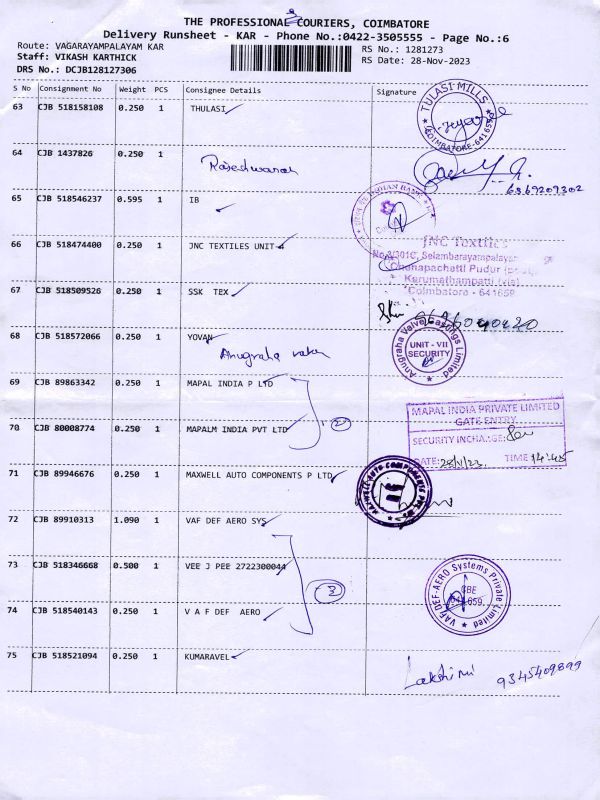 THE PROFESSIONAL COURIERS, COIMBATORE
Delivery Runsheet - KAR - Phone No.:0422-3505555 - Page No.:6
Route: VAGARAYAMPALAYAM KAR
RS No.: 1281273
Staff: VIKASH KARTHICK
RS Date: 28-Nov-2023
DRS No.: DCJB128127306
S No Consignment No Weight PCS Consignee Details Signature
63 CJB 518158108 0.250 1 THULASI
TULASI MILLS
COIMBATORE-641659
64 CJB 1437826 0.250 1
Rajeshwaran
6369209302
65 CJB 518546237 0.595 1 IB
INDIAN BANK
66 CJB 518474400 0.250 1 JNC TEXTILES UNIT-4
JNC Textiles
No.3/301C, Selambarayampalayam
Chenapachetti Pudur
Karumathampatti (via)
Coimbatore - 641659
67 CJB 518509526 0.250 1 SSK TEX
68 CJB 518572066 0.250 1 YOVAN
Anugraha valve
Anugraha Valve Castings Limited
UNIT - VII
SECURITY
69 CJB 89863342 0.250 1 MAPAL INDIA P LTD
70 CJB 80008774 0.250 1 MAPALM INDIA PVT LTD
2
MAPAL INDIA PRIVATE LIMITED
GATE ENTRY
SECURITY INCHARGE:
DATE: 28/11/23 TIME 14:45
71 CJB 89946676 0.250 1 MAXWELL AUTO COMPONENTS P LTD
MAXWELL AUTO COMPONENTS
72 CJB 89910313 1.090 1 VAF DEF AERO SYS
73 CJB 518346668 0.500 1 VEE J PEE 2722300044
3
VAFDEF-AERO Systems Private Limited
CBE
641659
74 CJB 518540143 0.250 1 V A F DEF AERO
75 CJB 518521094 0.250 1 KUMARAVEL
Lakshmi 9345409899